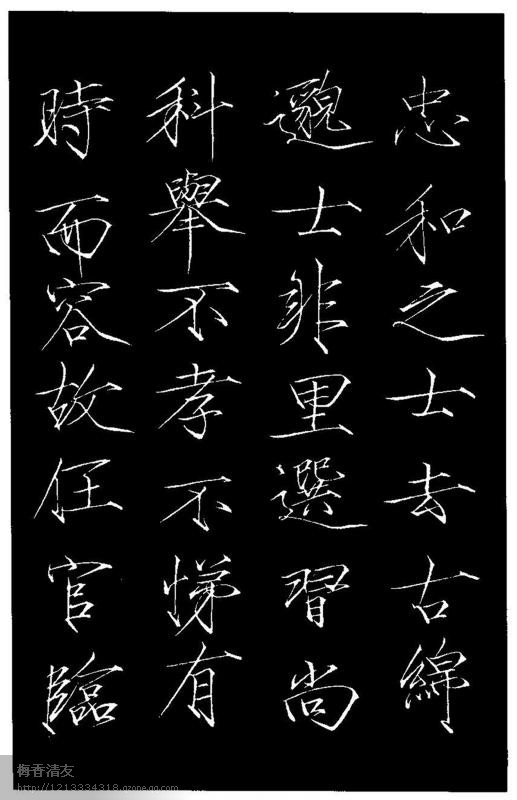 忠和之士去古綿
邈士非里選習尚
科舉不孝不悌有
時而容故任官臨
梅香清友
http://1213334318.qzone.qq.com